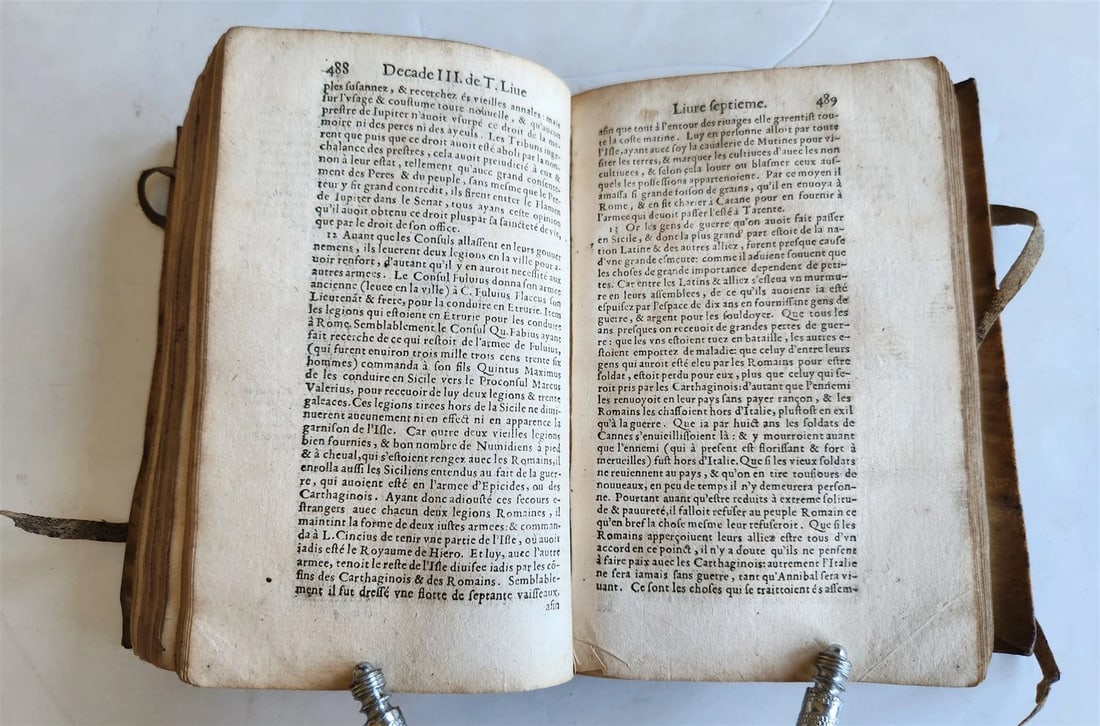 488 Decade III. de T. Liue
ples susannez, & recerchez és vieilles annales: mais
sur l'vsage & coustume toute nouuelle, & qu'aucun
prestre de Iupiter n'auoit vsurpé ce droit de la me-
moire ni des peres ni des ayeuls. Les Tribuns iuge-
rent que puis que ce droit auoit esté aboli par la non-
chalance des prestres, cela auoit preiudicié à eux &
non à leur estat, tellement qu'auec grand consente-
ment des Peres & du peuple, sans mesme que le Pre-
teur y fit grand contredit, ils firent entrer le Flamen
de Iupiter dans le Senat, tous ayans ceste opinion
qu'il auoit obtenu ce droit plus par sa saincteté de vie,
que par le droit de son office.
12 Auant que les Consuls allassent en leurs gouuer
nemens, ils leuerent deux legions en la ville pour a-
uoir renfort, d'autant qu'il y en auroit necessité aux
autres armees. Le Consul Fuluius donna son armee
ancienne (leuee en la ville) à C. Fuluius Flaccus son
Lieutenāt & frere, pour la conduire en Etrurie. Item
les legions qui estoient en Etrurie pour les conduire
à Rome. Semblablement le Consul Qu. Fabius ayant
fait recerche de ce qui restoit de l'armee de Fuluius,
(qui furent enuiron trois mille trois cens trente six
hommes) commanda à son fils Quintus Maximus
de les conduire en Sicile vers le Proconsul Marcus
Valerius, pour receuoir de luy deux legions & trente
galeaces. Ces legions tirees hors de la Sicile ne dimi-
nuerent aucunement ni en effect ni en apparence la
garnison de l'Isle. Car outre deux vieilles legions
bien fournies, & bon nombre de Numidiens à pied
& à cheual, qui s'estoient rengez auec les Romains, il
enrolla aussi les Siciliens entendus au fait de la guer-
re, qui auoient esté en l'armee d'Epicides, ou des
Carthaginois. Ayant donc adiousté ces secours e-
strangers auec chacun deux legions Romaines, il
maintint la forme de deux iustes armees: & comman-
da à L. Cincius de tenir vne partie de l'Isle, où auoit
iadis esté le Royaume de Hiero. Et luy, auec l'autre
armee, tenoit le reste de l'Isle diuisee iadis par les cō-
fins des Carthaginois & des Romains. Semblable-
ment il fut dressé vne flotte de septante vaisseaux,
afin
Liure septieme. 489
afin que tout à l'entour des riuages elle garentist tou-
te la coste marine. Luy en personne alloit par toute
l'Isle, ayant auec soy la caualerie de Mutines pour vi-
siter les terres, & marquer les cultiuees d'auec les non
cultiuees, & selon cela louer ou blasmer ceux aus-
quels les possessions appartenoient. Par ce moyen il
amassa si grande foison de grains, qu'il en enuoya à
Rome, & en fit charier à Catane pour en fournir à
l'armee qui deuoit passer l'esté à Tarente.
13 Or les gens de guerre qu'on auoit fait passer
en Sicile, & dont la plus grand' part estoit de la na-
tion Latine & des autres alliez, furent presque cause
d'vne grande esmeute: comme il aduient souuent que
les choses de grande importance dependent de peti-
tes. Car entre les Latins & alliez s'esleua vn murmu-
re en leurs assemblees, de ce qu'ils auoient ia esté
espuisez par l'espace de dix ans en fournissant gens de
guerre, & argent pour les souldoyer. Que tous les
ans presques on receuoit de grandes pertes de guer-
re: que les vns estoient tuez en bataille, les autres e-
stoient emportez de maladie: que celuy d'entre leurs
gens qui auroit esté eleu par les Romains pour estre
soldat, estoit perdu pour eux, plus que celuy qui se-
roit pris par les Carthaginois: d'autant que l'ennemi
les renuoyoit en leur pays sans payer rançon, & les
Romains les chassoient hors d'Italie, plustost en exil
qu'à la guerre. Que ia par huict ans les soldats de
Cannes s'enuieillissoient là: & y mourroient auant
que l'ennemi (qui à present est florissant & fort à
merueilles) fust hors d'Italie. Que si les vieux soldats
ne reuiennent au pays, & qu'on en tire tousiours de
nouueaux, en peu de temps il n'y demeurera person-
ne. Pourtant auant qu'estre reduits à extreme solitu-
de & pauureté, il falloit refuser au peuple Romain ce
qu'en bref la chose mesme leur refuseroit. Que si les
Romains apperçoiuent leurs alliez estre tous d'vn
accord en ce poinct, il n'y a doute qu'ils ne pensent
à faire paix auec les Carthaginois: autrement l'Italie
ne sera iamais sans guerre, tant qu'Annibal sera vi-
uant. Ce sont les choses qui se traittoient és assem-